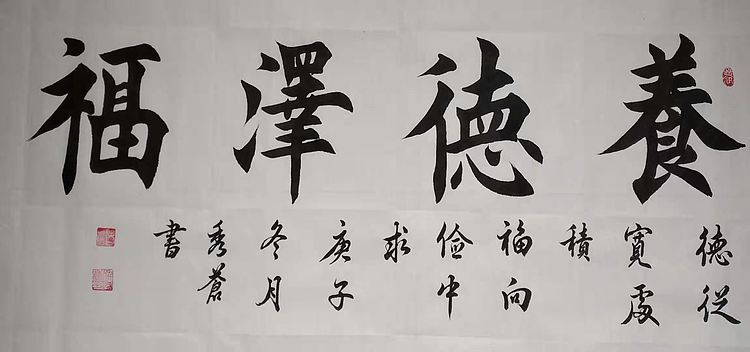 養德澤福
德從
寬處
積
福向
儉中
求
庚子
冬月
秀蒼
書